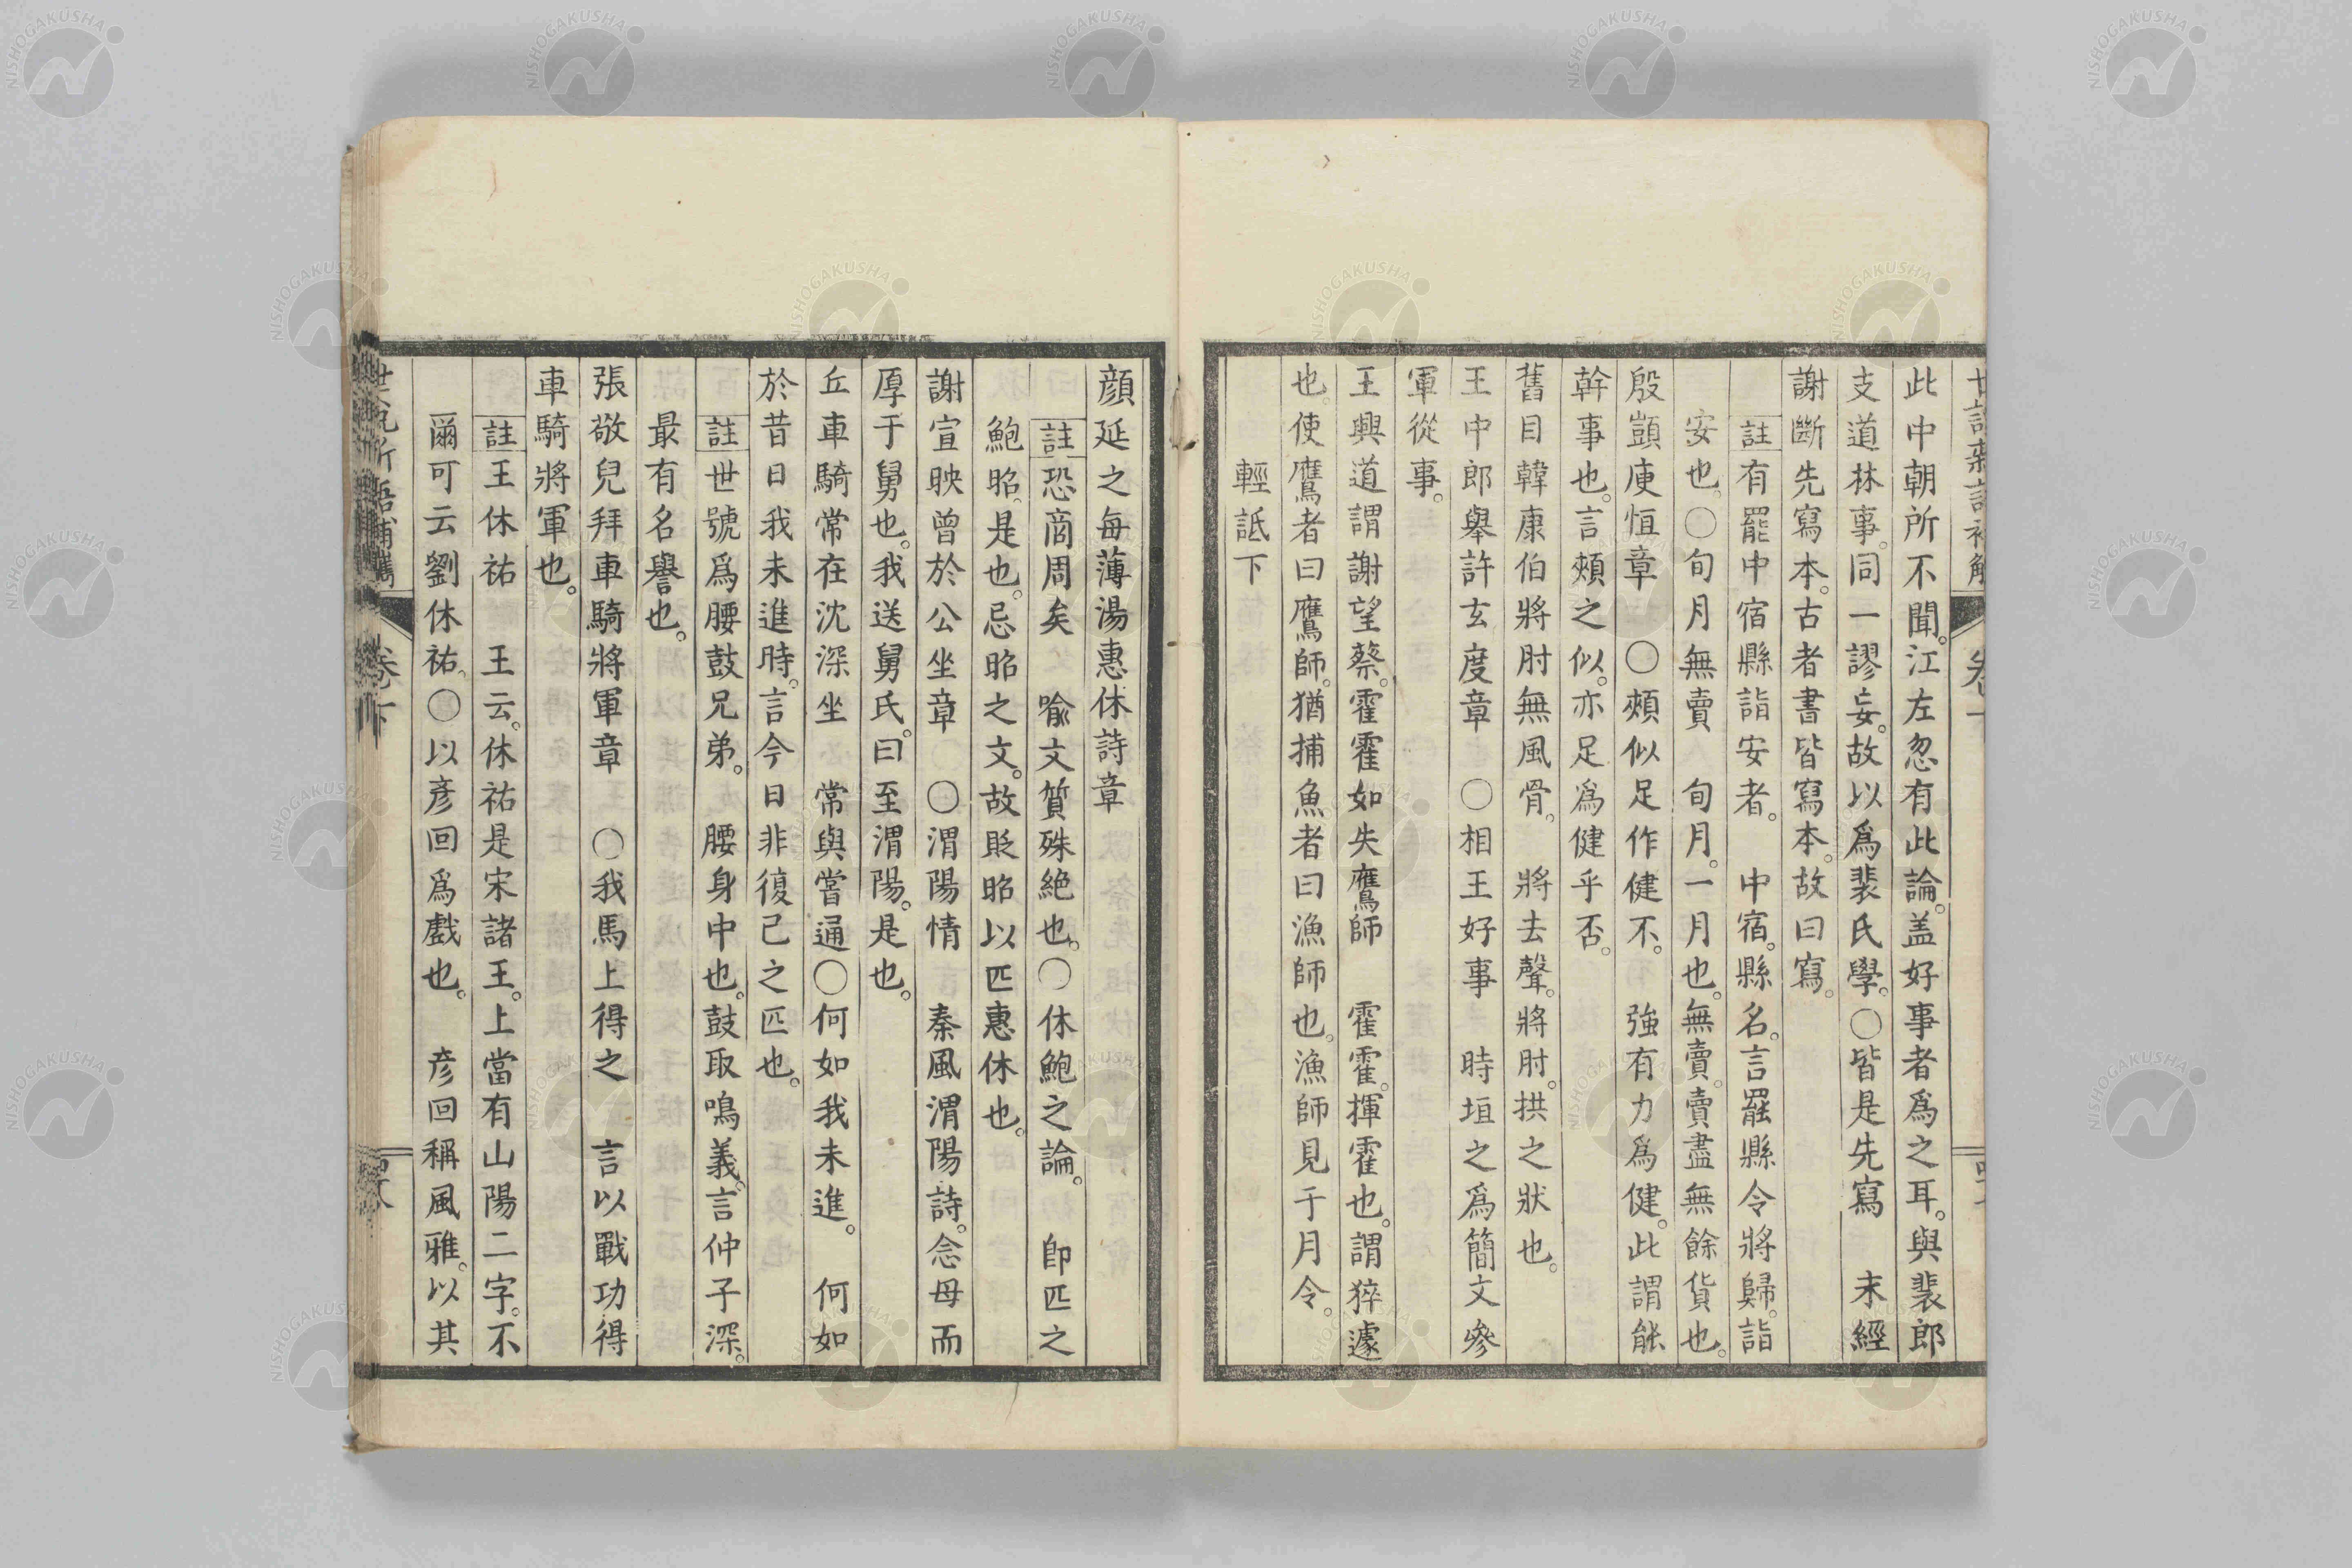 此中朝所不聞。江左忽有此論。盖好事者爲之耳。與裴郎
支道林事。同一謬妄。故以爲裴氏學。〇皆是先寫 末經
謝斷先寫本。古者書皆寫本。故曰寫。
註有罷中宿縣詣安者。 中宿。縣名。言罷縣令將歸。詣
安也。〇旬月無賣 旬月。一月也。無賣。賣盡無餘貨也。
殷顗庾恒章 〇頰似足作健不。 強有力爲健。此謂能
幹事也。言頰之似。亦足爲健乎否。
舊目韓康伯將肘無風骨。 將去聲。將肘。拱之狀也。
王中郎舉許玄度章 〇相王好事 時垣之爲簡文參
軍從事。
王興道謂謝望蔡。霍霍如失鷹師 霍霍。揮霍也。謂猝遽
也。使鷹者曰鷹師。猶捕魚者曰漁師也。漁師見于月令。
輕詆下
顏延之每薄湯惠休詩章
註恐商周矣 喻文質殊絶也。〇休鮑之論。 卽匹之
鮑昭。是也。忌昭之文。故貶昭以匹惠休也。
謝宣映曾於公坐章 〇渭陽情 秦風渭陽詩。念母而
厚于舅也。我送舅氏。曰至渭陽。是也。
丘車騎常在沈深坐 常與嘗通〇何如我未進。 何如
於昔日我未進時。言今日非復己之匹也。
註世號爲腰鼓兄弟。 腰身中也。鼓取鳴義。言仲子深。
最有名譽也。
張敬兒拜車騎將軍章 〇我馬上得之 言以戰功得
車騎將軍也。
註王休祐 王云。休祐是宋諸王。上當有山陽二字。不
爾可云劉休祐。〇以彦回爲戲也。 彦回稱風雅。以其
卷下